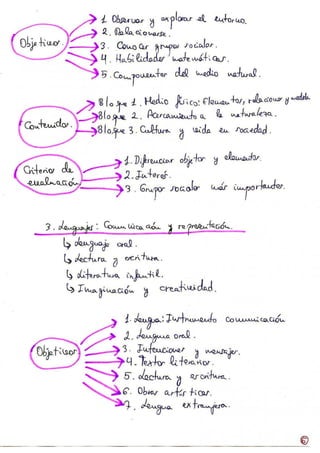 Objetivos.
1. Observar y explorar el entorno.
2. Relacionarse.
3. Conocer grupos sociales.
4. Habilidades matemáticas.
5. Componentes del medio natural.
Contenidos.
Bloque 1. Medio físico: Elementos, relaciones y medida
Bloque 2. Acercamiento a la naturaleza.
Bloque 3. Cultura y vida en sociedad.
Criterios de evaluación
1. Diferenciar objetos y elementos.
2. Interés.
3. Grupos sociales más importantes.
3. Lenguajes: Comunicación y representación.
↳ Lenguaje oral.
↳ Lectura y escritura.
↳ Literatura infantil.
↳ Imaginación y creatividad.
Objetivos
1. Lengua: Instrumento comunicación
2. Lengua oral.
3. Intenciones y mensajes.
4. Textos literarios.
5. Lectura y escritura.
6. Obras artísticas.
7. Lengua extranjera.